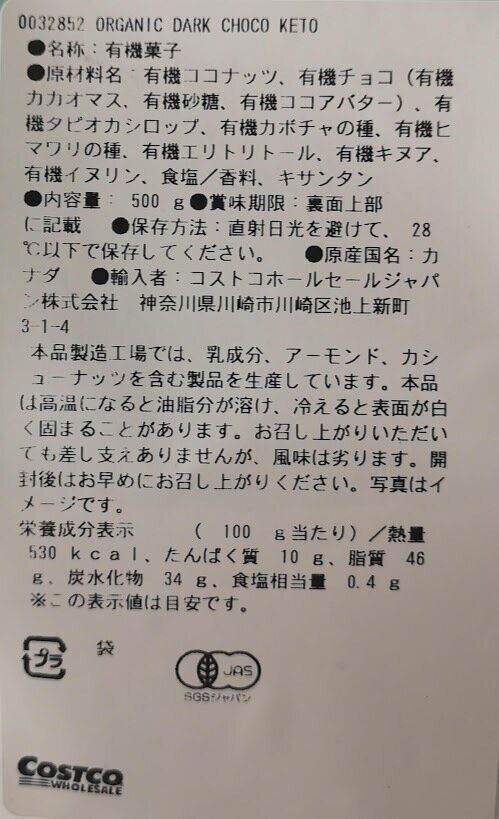 0032852 ORGANIC DARK CHOCO KETO
●名称：有機菓子
●原材料名：有機ココナッツ、有機チョコ（有機
カカオマス、有機砂糖、有機ココアバター）、有
機タピオカシロップ、有機カボチャの種、有機ヒ
マワリの種、有機エリトリトール、有機キヌア、
有機イヌリン、食塩／香料、キサンタン
●内容量：500 g●賞味期限：裏面上部
に記載 ●保存方法：直射日光を避けて、28
℃以下で保存してください。 ●原産国名：カ
ナダ ●輸入者：コストコホールセールジャパ
ン株式会社 神奈川県川崎市川崎区池上新町
3-1-4
本品製造工場では、乳成分、アーモンド、カシ
ューナッツを含む製品を生産しています。本品
は高温になると油脂分が溶け、冷えると表面が白
く固まることがあります。お召し上がりいただい
ても差し支えありませんが、風味は劣ります。開
封後はお早めにお召し上がりください。写真はイ
メージです。
栄養成分表示 （ 100 g当たり）／熱量
530 kcal、たんぱく質 10 g、脂質 46
g、炭水化物 34 g、食塩相当量 0.4 g
※この表示値は目安です。
プラ 袋
JAS
SGSジャパン
COSTCO
WHOLESALE